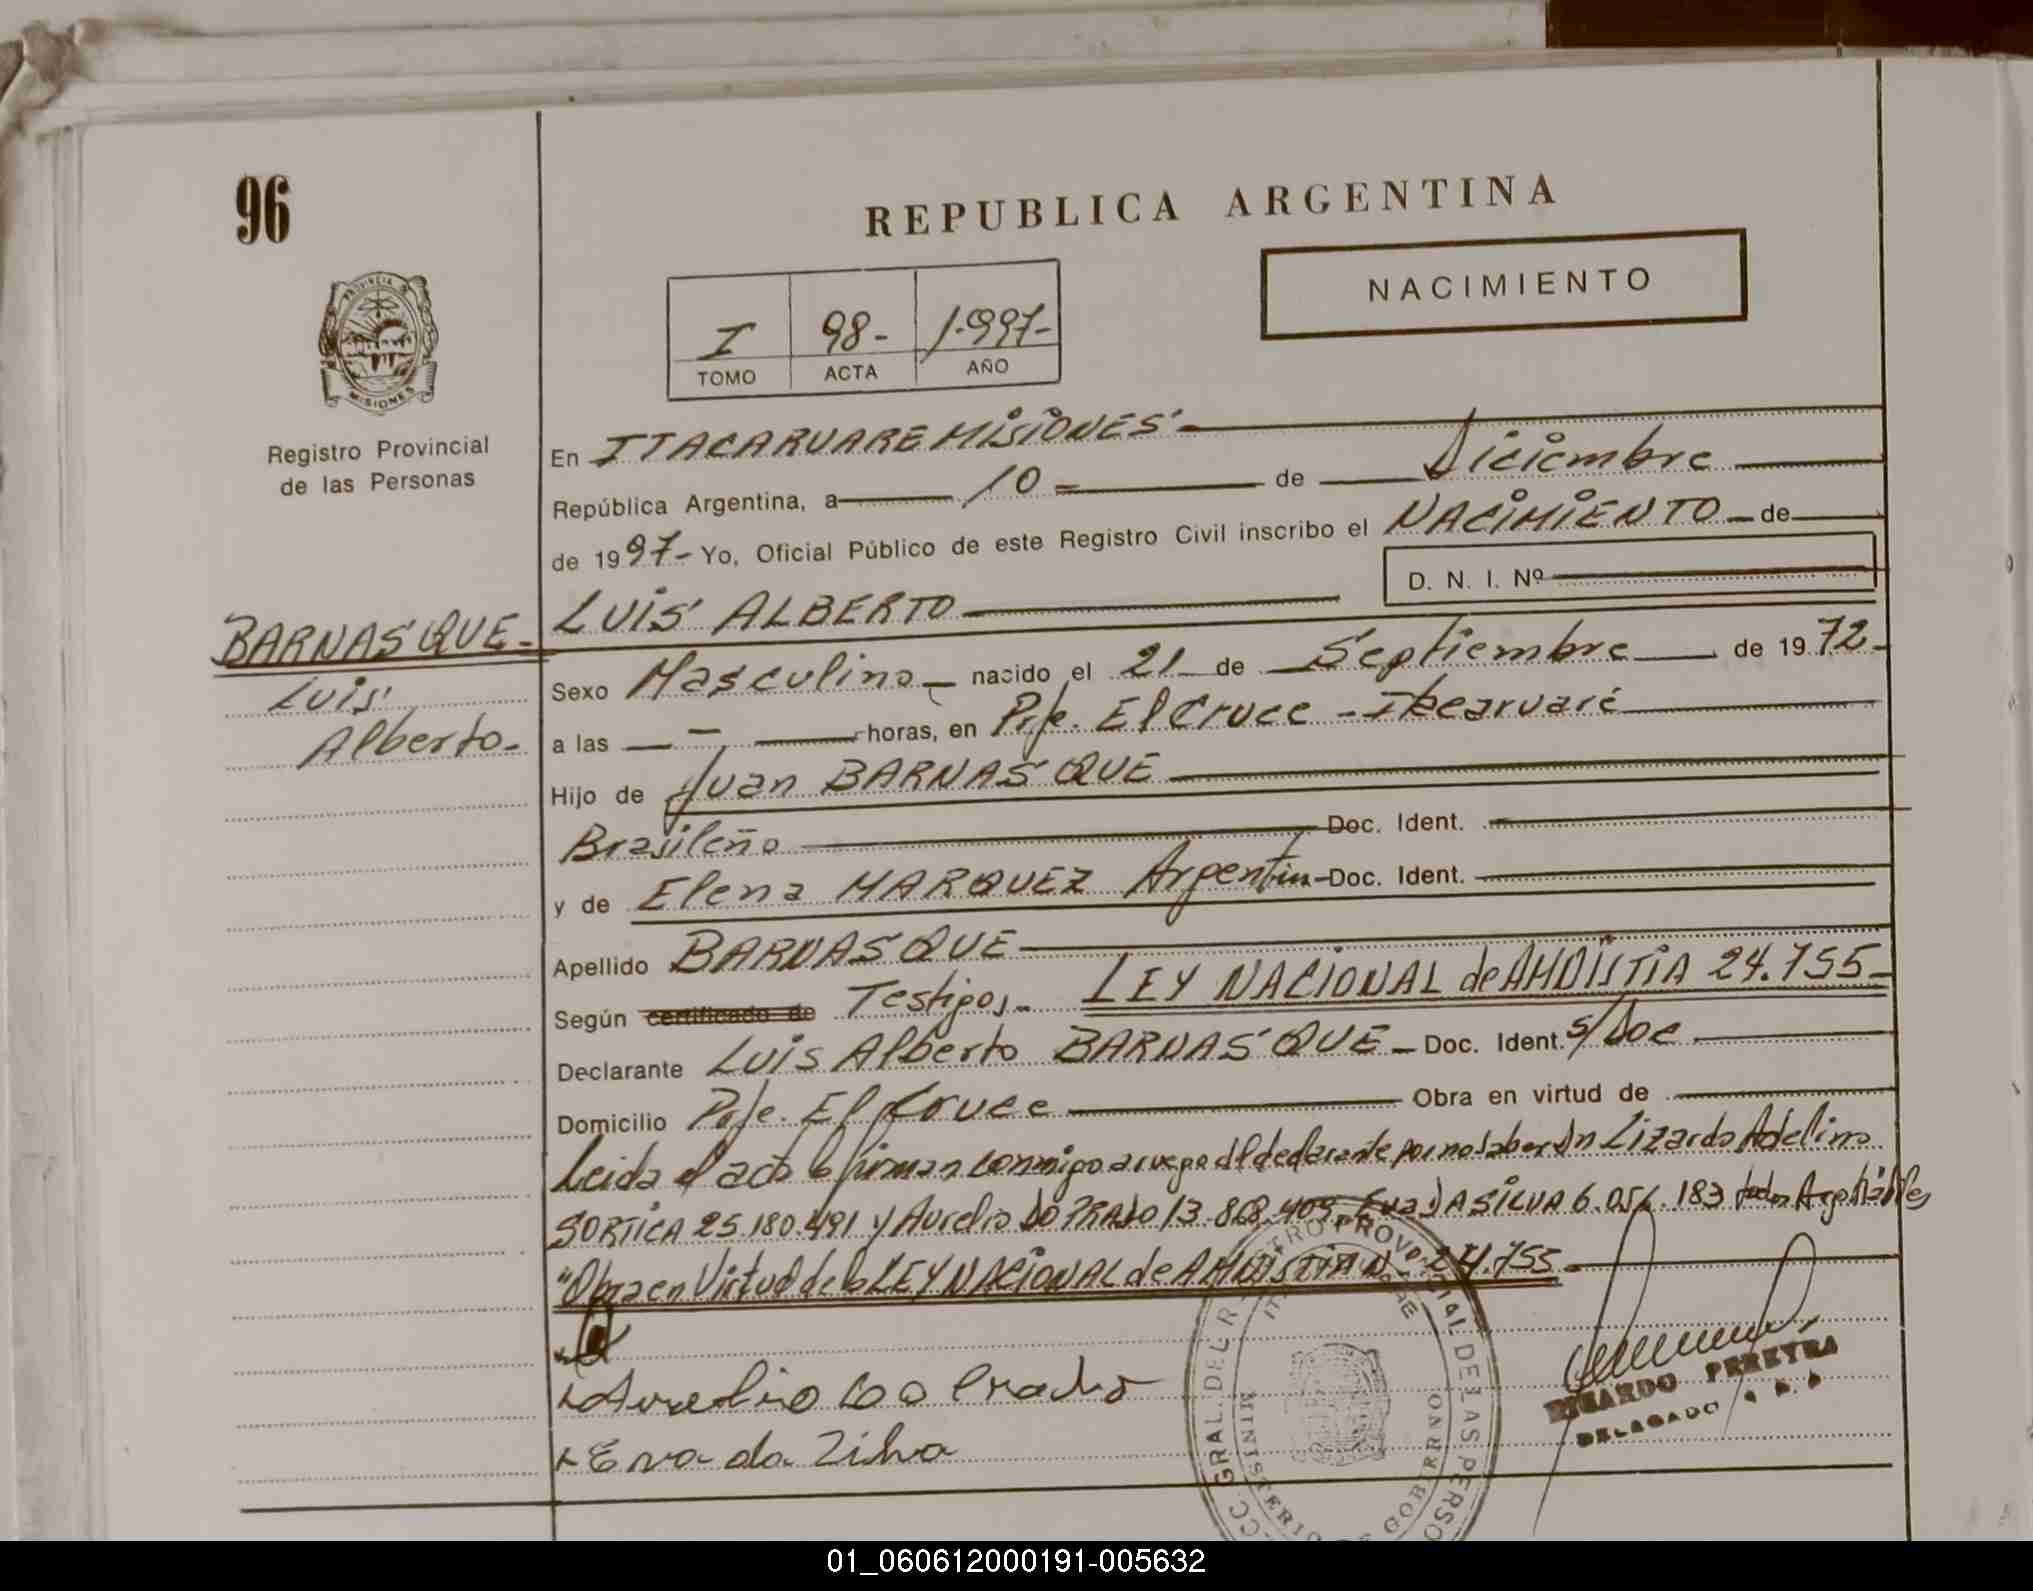 96
REPUBLICA ARGENTINA
NACIMIENTO
I 98- 1.997-
TOMO ACTA AÑO
PROVINCIA DE
MISIONES
Registro Provincial
de las Personas
En ITACARUARE MISIONES
República Argentina, a 10 de Diciembre
de 1997- Yo, Oficial Público de este Registro Civil inscribo el NACIMIENTO de
D. N. I. Nº
BARNASQUE-
Luis
Alberto-
LUIS ALBERTO
Sexo Masculino nacido el 21 de Septiembre de 1972-
a las - horas, en Pje. El Cruce - Itacaruaré
Hijo de Juan BARNASQUE
Brasileño Doc. Ident.
y de Elena MARQUEZ Argentin Doc. Ident.
Apellido BARNASQUE
Según certificado de Testigos- LEY NACIONAL de AMDISTIA 24.755-
Declarante Luis Alberto BARNASQUE - Doc. Ident. S/Doc
Domicilio Pje. El Cruce Obra en virtud de
Leida el acta la firman conmigo a ruego del declarante por no saber Lizardo Adelino
SORTICA 25.180.491 y Aurelio DO PRADO Eva DA SILVA todos Arg. Hábiles
"Obra en Virtud de la LEY NACIONAL de AMDISTIA N 24.755
Aurelio do Prado
Eva da Zilva
RICARDO PEREYRA
DELEGADO
GRAL. DEL REGISTRO PROVINCIAL DE LAS PERSO
MINISTERIO DE GOBIERNO
01_060612000191-005632